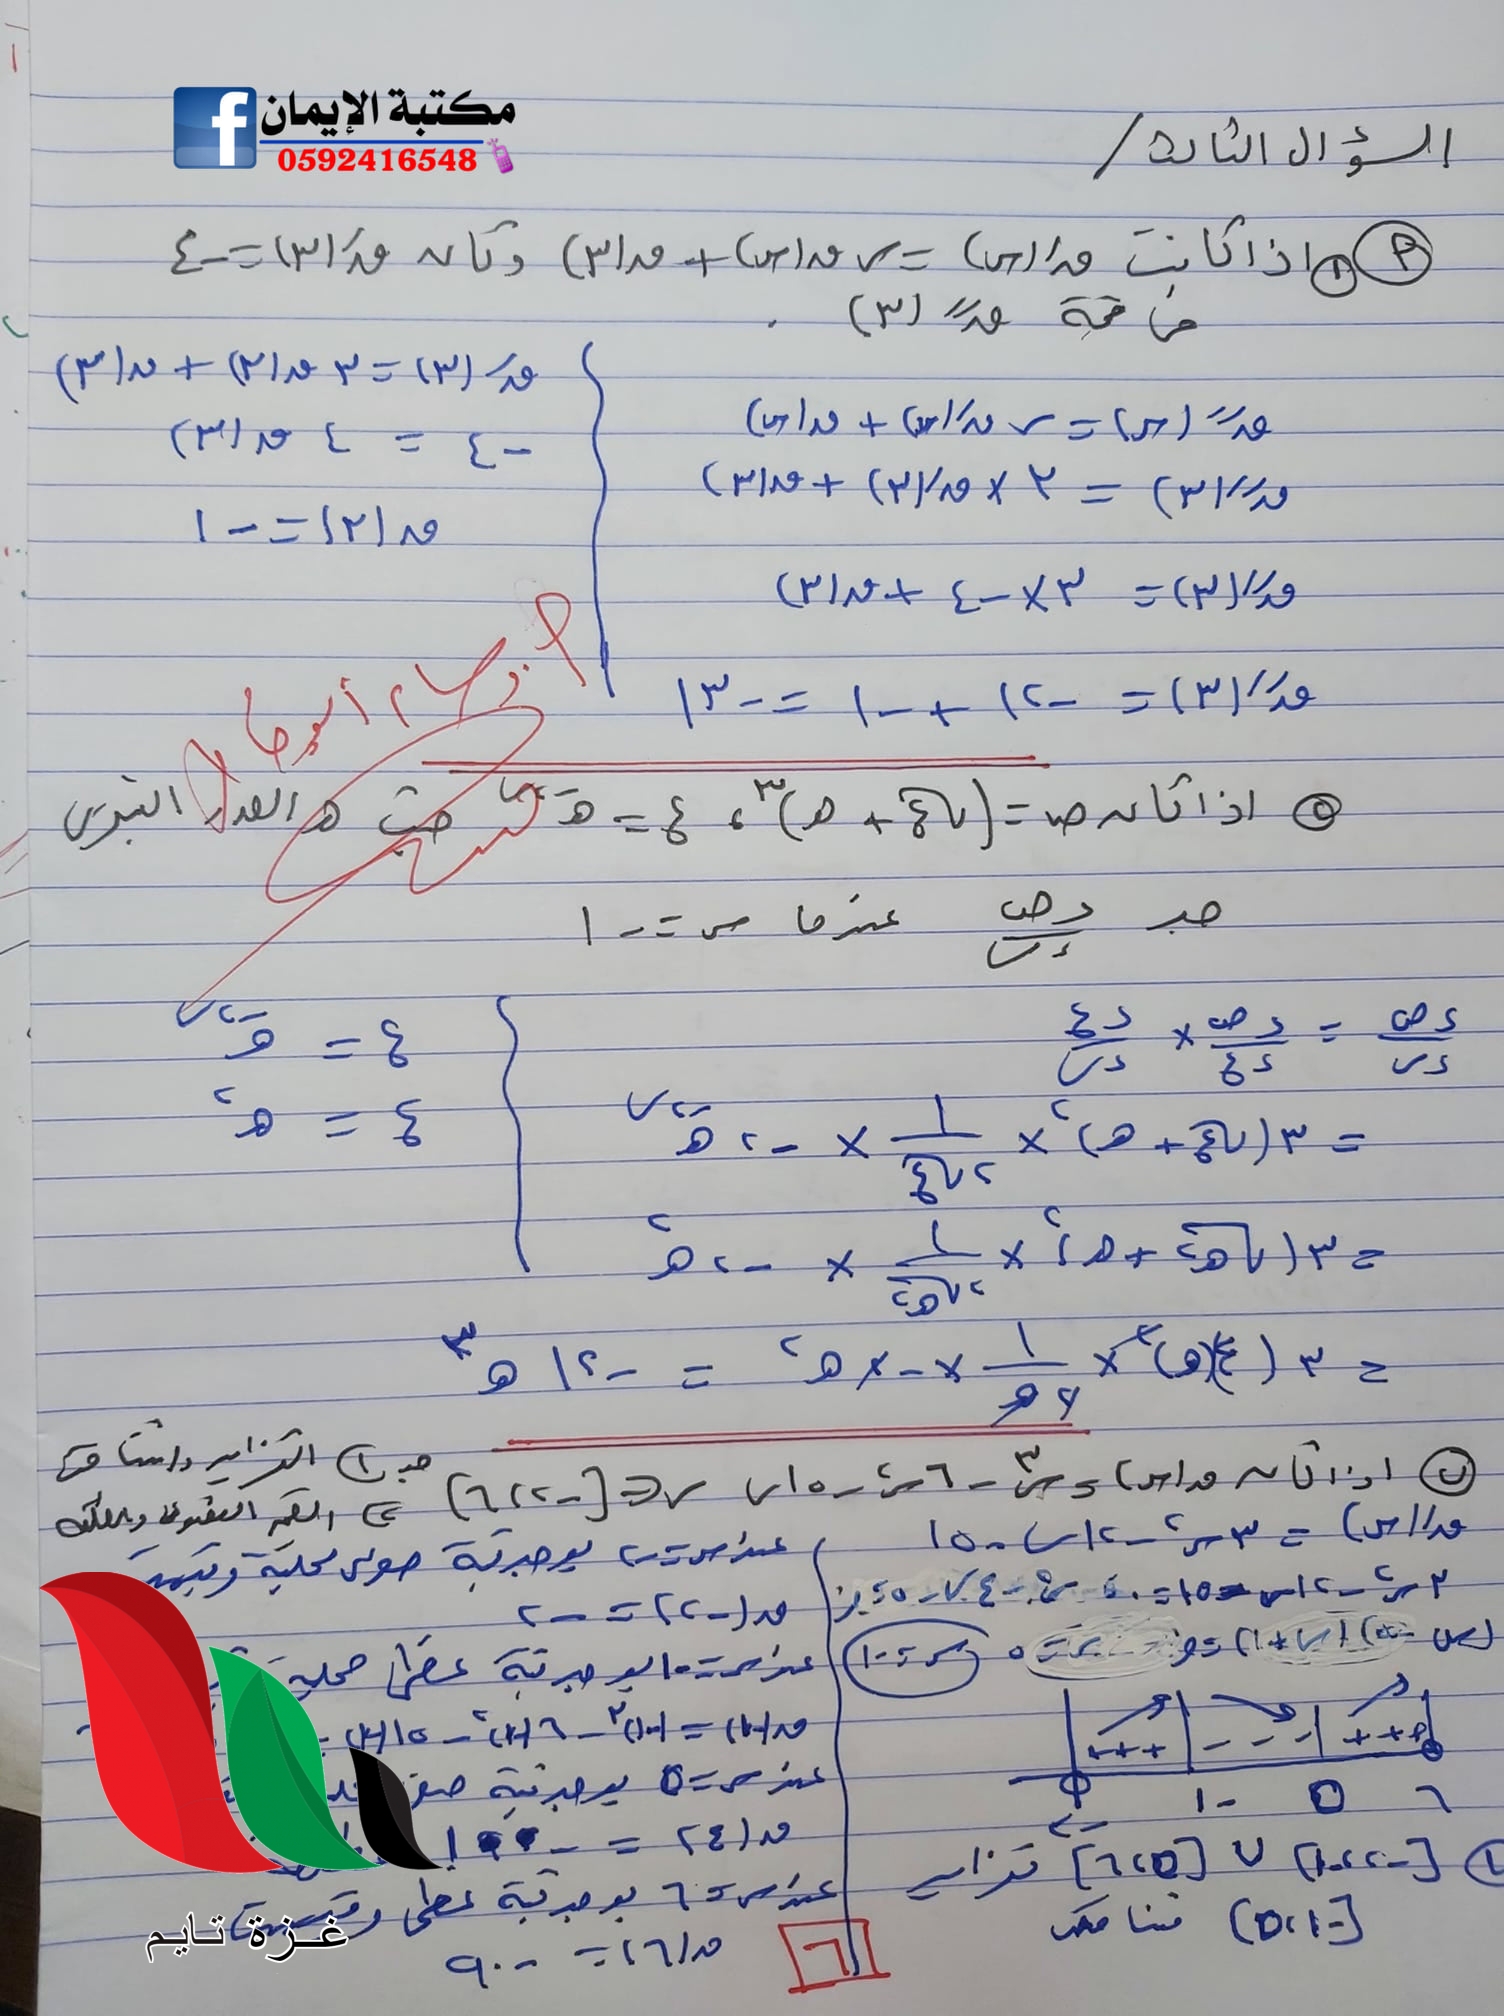 مكتبة الإيمان
0592416548
السؤال الثالث /
أ ١ اذا كانت قَ(س) = س ق(س) + ق(٣) وكان قَ(٣) = -٤
قيمة قً(٣)
قً(س) = س قَ(س) + ق(س)
قً(٣) = ٣ × قَ(٣) + ق(٣)
قً(٣) = ٣ × -٤ + ق(٣)
قً(٣) = -١٢ + -١ = -١٣
قَ(٣) = ٣ ق(٣) + ق(٣)
-٤ = ٤ ق(٣)
ق(٣) = -١
اذا كان ص = (√ع + هـ)^٣ ، ع = هـ^-٢س حيث هـ العدد النيبيري
جد دص/دس عندما س = -١
دص/دس = دص/دع × دع/دس
= ٣(√ع + هـ)^٢ × ١/٢√ع × -٢هـ^-٢س
= ٣(√هـ^٢ + هـ)^٢ × ١/٢√هـ^٢ × -٢هـ^٢
= ٣(٢هـ)^٢ × ١/٢هـ × -٢هـ^٢ = -١٢هـ^٣
ع = هـ^-٢س
ع = هـ^٢
ب اذا كان ق(س) = س^٣ - ٦س^٢ - ١٥س س ∈ [-٢،٦] جد ١) التزايد والتناقص
٢) القيم القصوى
قَ(س) = ٣س^٢ - ١٢س - ١٥
٣س^٢ - ١٢س - ١٥ = ٠
(س - ٥)(س + ١) = ٠ س = ٥ س = -١
+++ --- +++
-٢ -١ ٥ ٦
١ [-٢،-١] ∪ [٥،٦] تزايد
[-١،٥] تناقص
عند س = -٢ يوجد قيمة صغرى محلية وقيمتها
ق(-٢) = -٢
عند س = -١ يوجد قيمة عظمى محلية
ق(-١) = (-١)^٣ - ٦(-١)^٢ - ١٥(-١)
عند س = ٥ يوجد قيمة
عند س = ٦ يوجد قيمة عظمى وقيمتها
ق(٦) = -٩٠
٦
غزة تايم